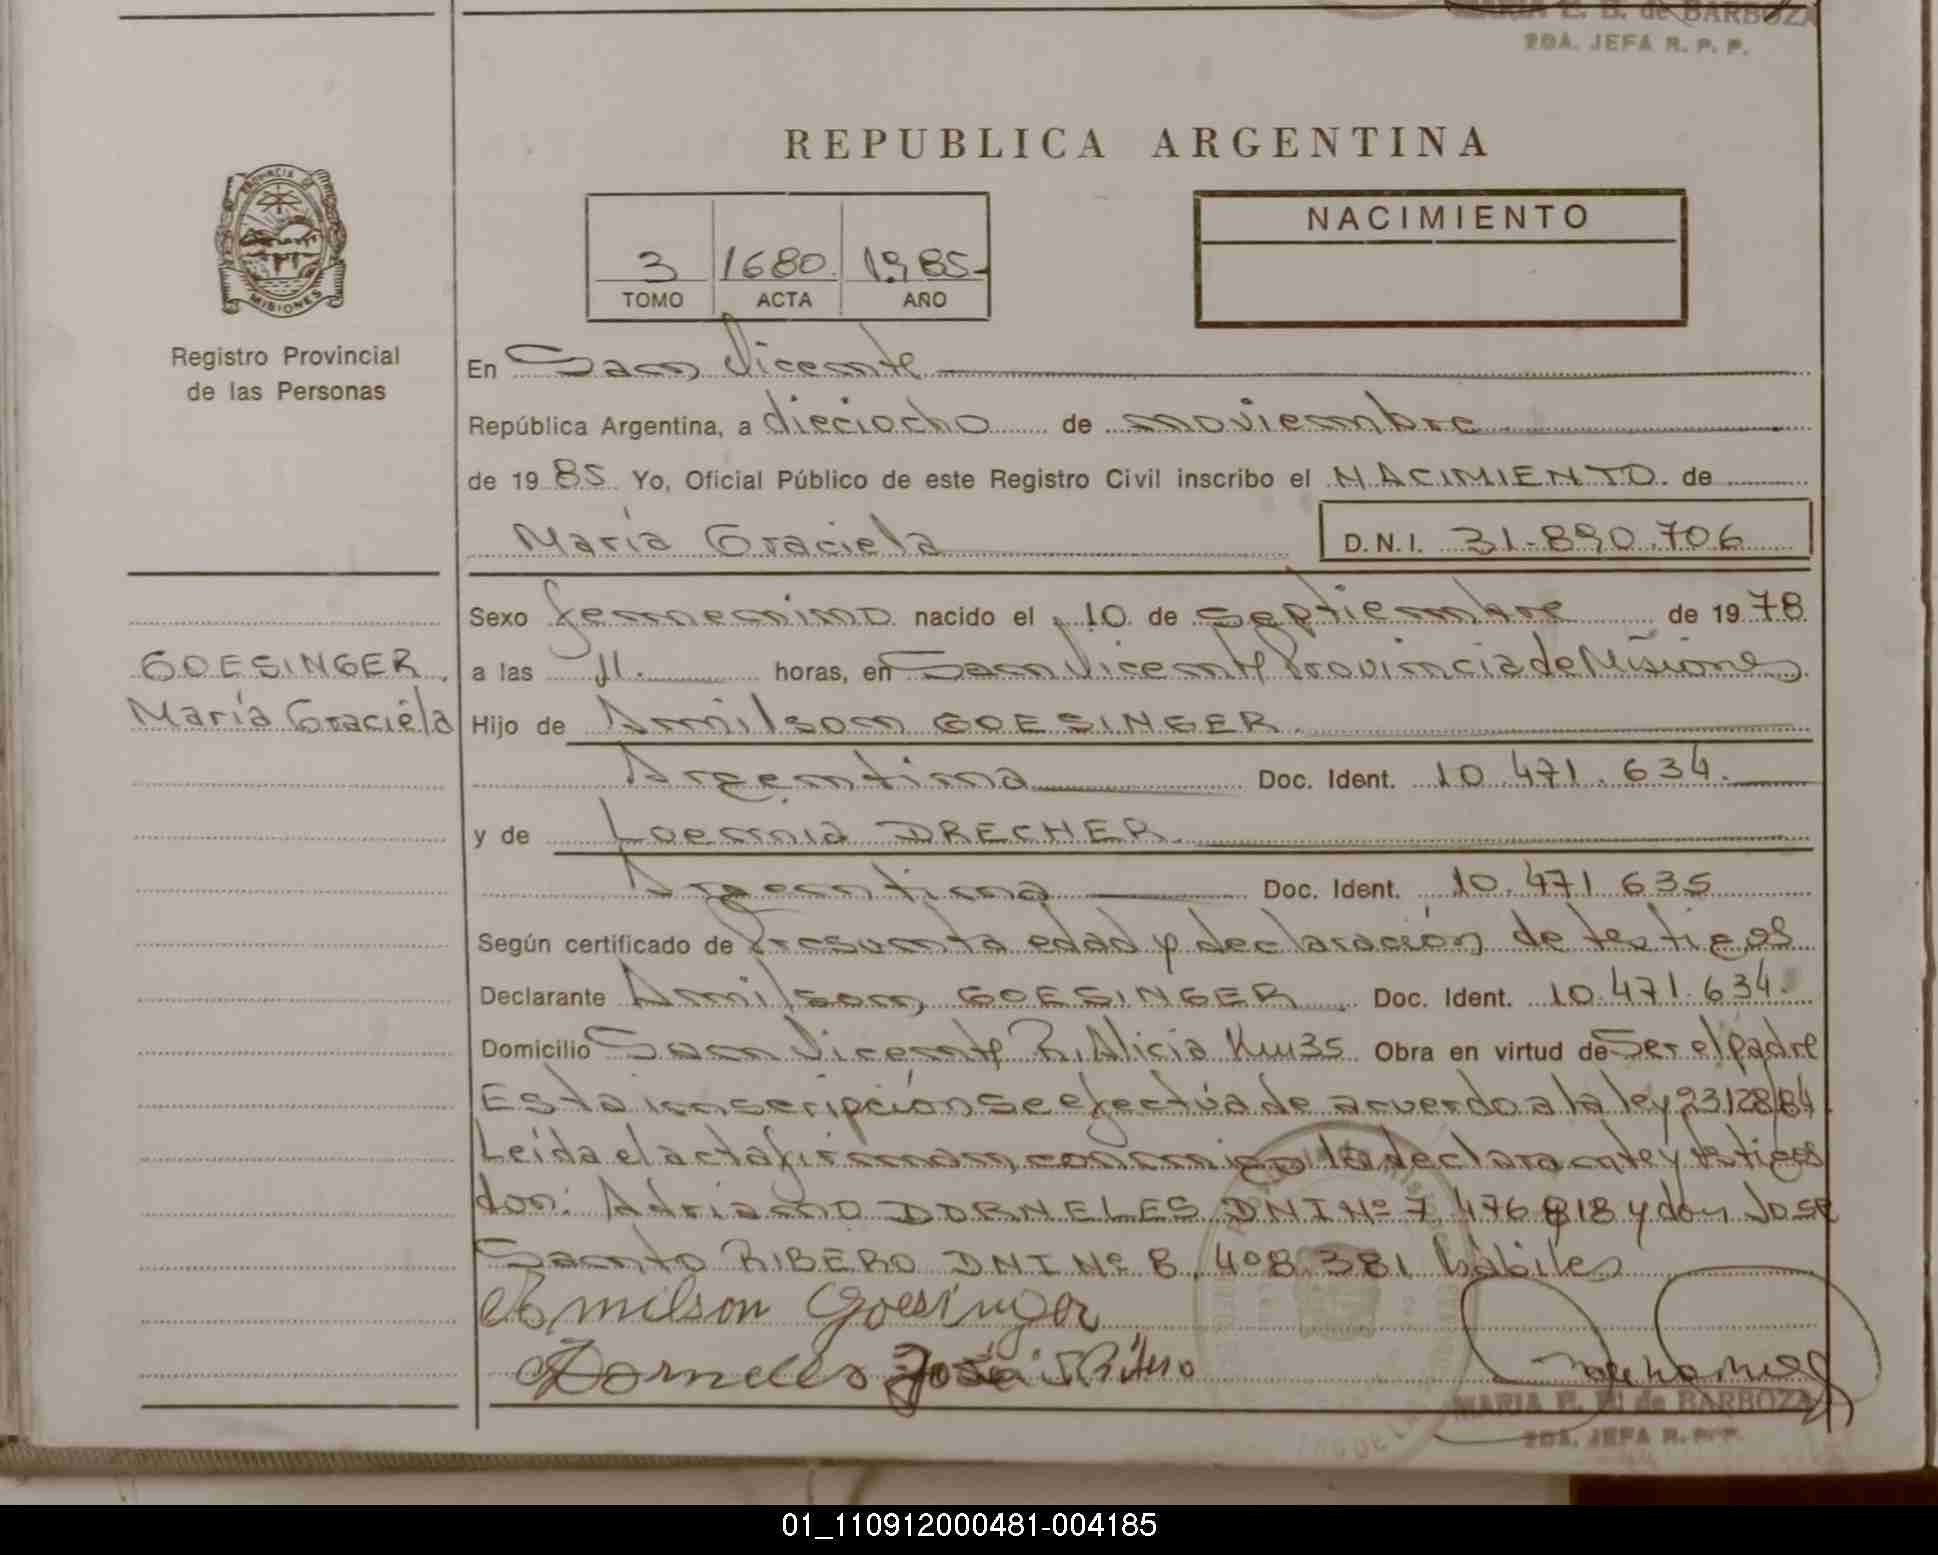 MARIA E. B. de BARBOZA
2DA. JEFA R. P. P.
REPUBLICA ARGENTINA
PROVINCIA DE
MISIONES
Registro Provincial
de las Personas
3 1680 1985
TOMO ACTA AÑO
NACIMIENTO
En San Vicente
República Argentina, a dieciocho de noviembre
de 19 85 Yo, Oficial Público de este Registro Civil inscribo el NACIMIENTO de
María Graciela D.N.I. 31.890.706
Sexo femenino nacido el 10 de septiembre de 19 78
GOESINGER
María Graciela
a las 11. horas, en San Vicente Provincia de Misiones
Hijo de Amilson GOESINGER.
Argentina Doc. Ident. 10.471.634.
y de Loennia DRECHER.
Argentina Doc. Ident. 10.471 635
Según certificado de Presunta edad y declaración de testigos
Declarante Amilson GOESINGER Doc. Ident. 10.471.634.
Domicilio San Vicente R. Alicia Km 35 Obra en virtud de Ser el padre
Esta inscripción se efectúa de acuerdo a la ley 23128/84.
Leída el acta firman conmigo la declarante y testigos
don: Adriano DORNELES DNI Nº 7.476.818 y don Jose
Santo RIBERO DNI Nº 8.408.381 hábiles
Amilson Goesinger
Dorneles José S. Ribero
MARIA E. B. de BARBOZA
2DA. JEFA R. P. P.
01_110912000481-004185